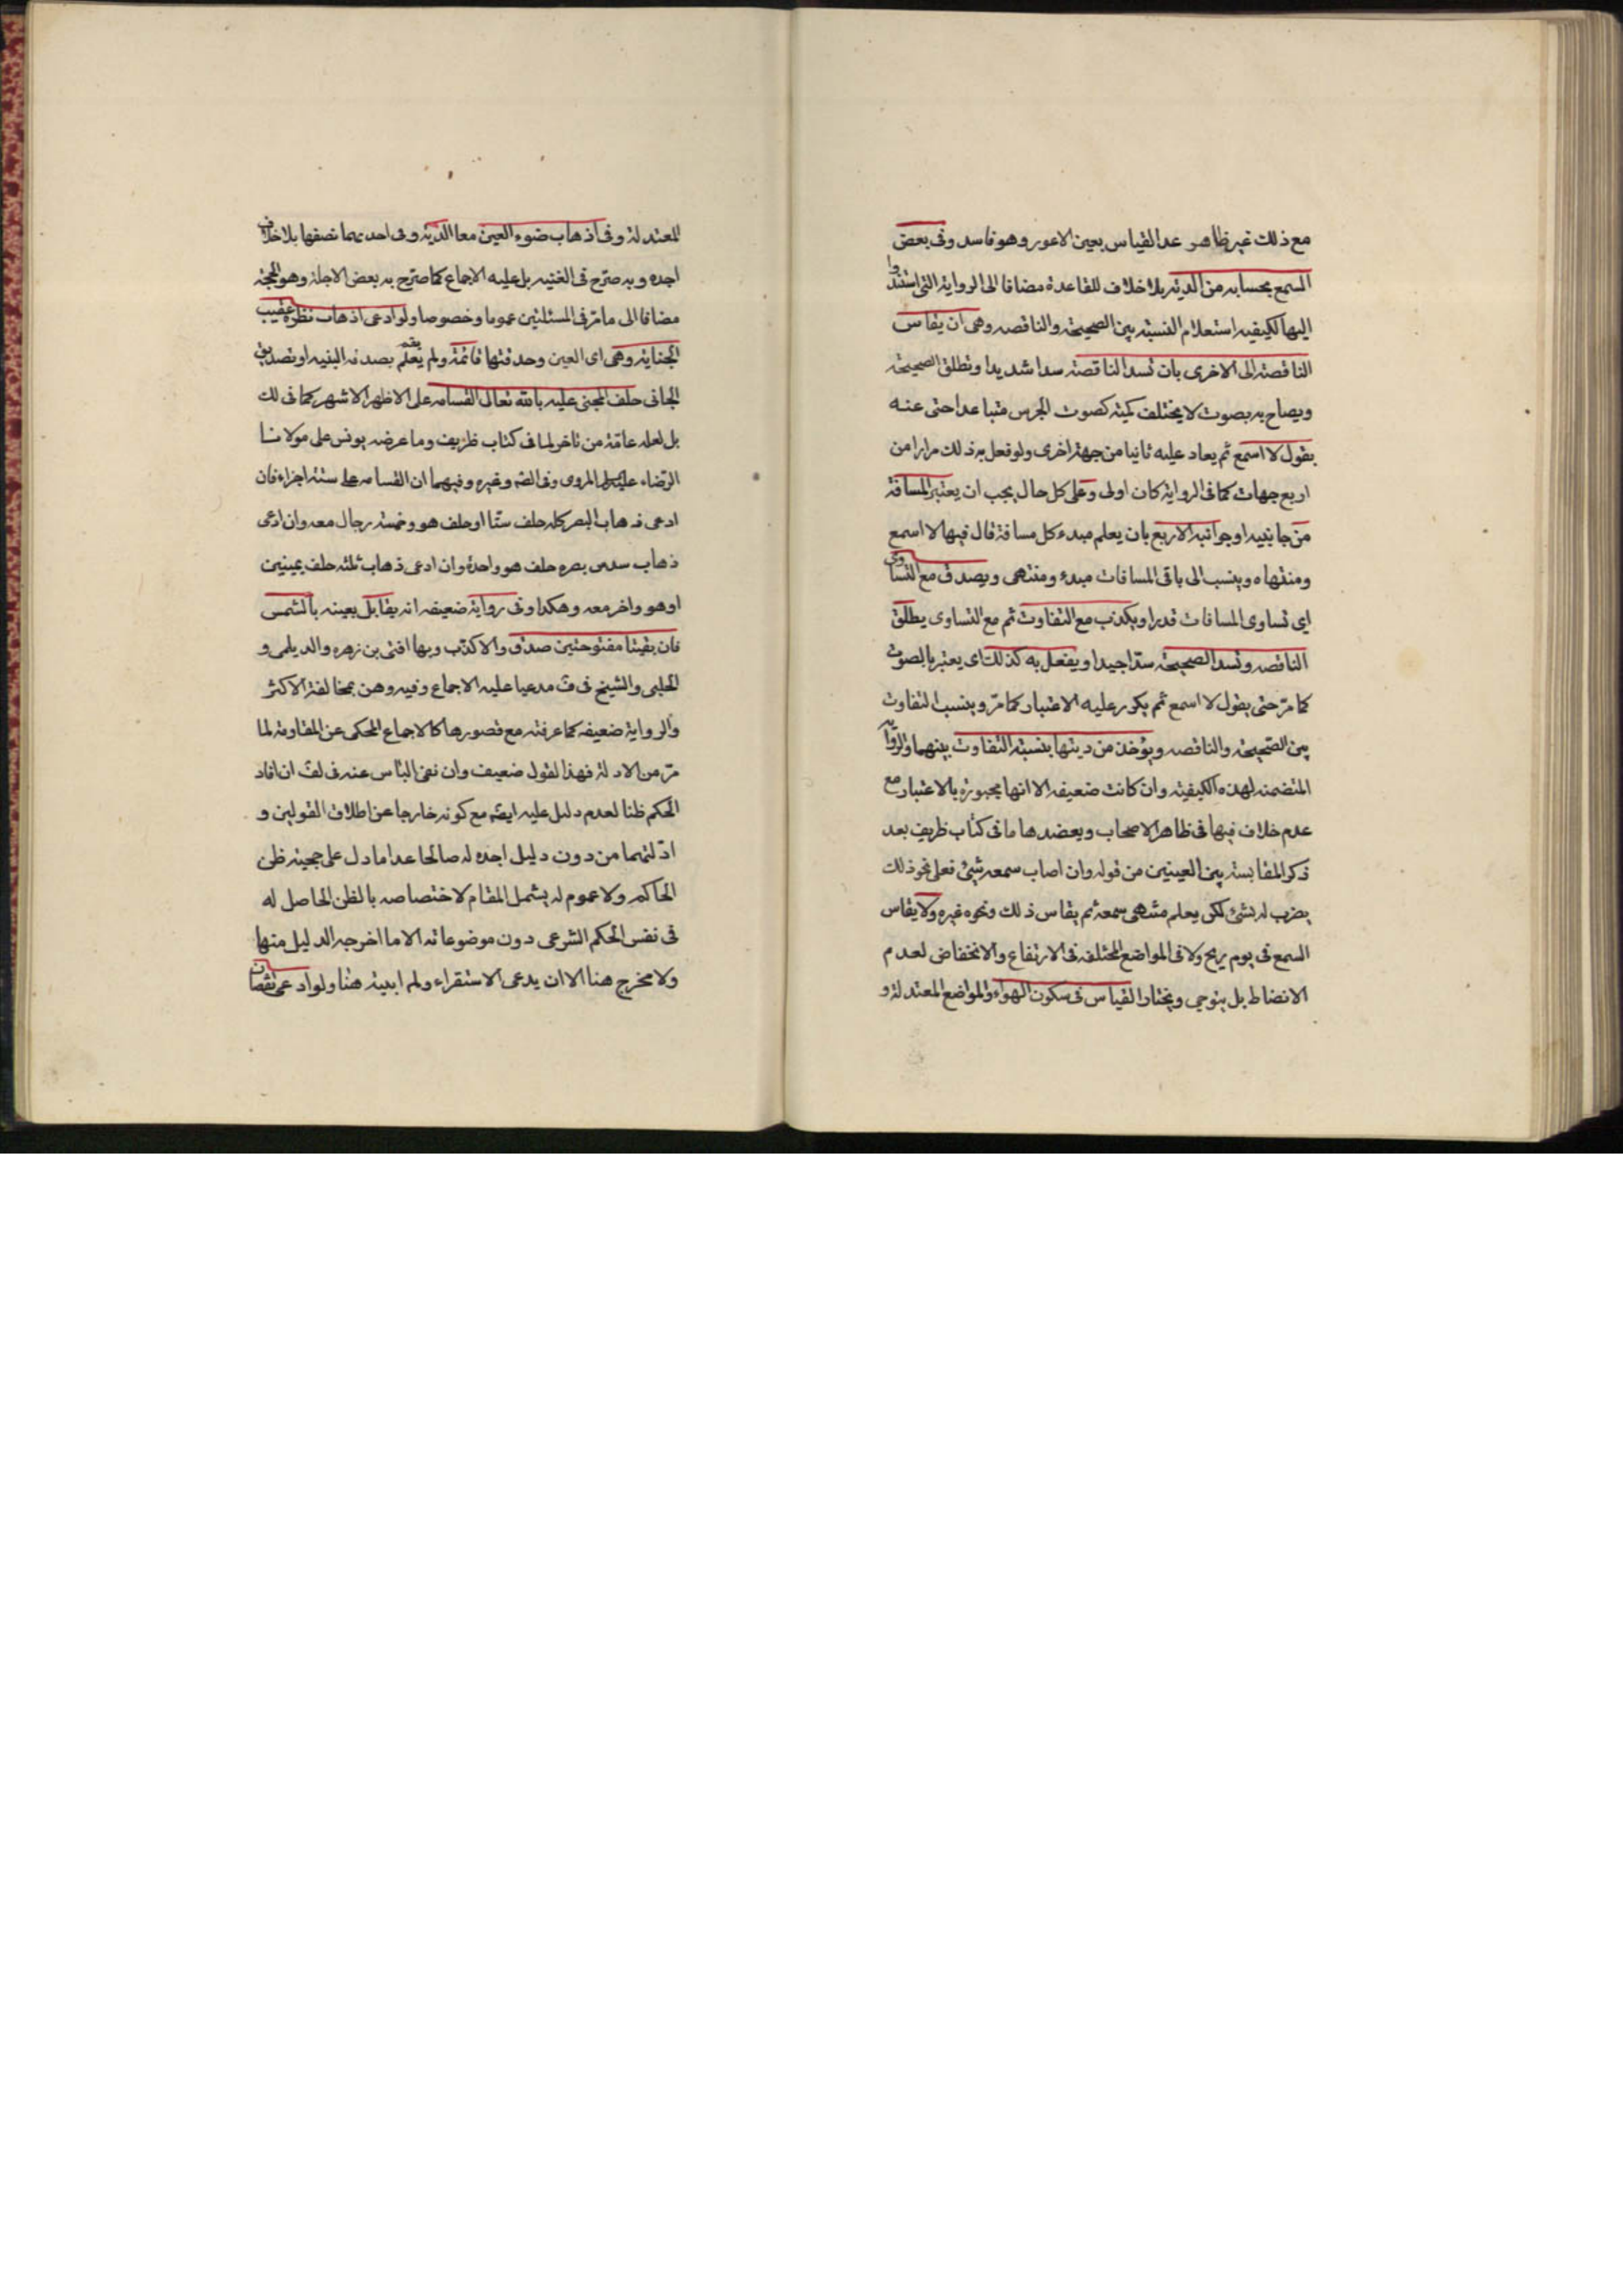 مع ذلك غير ظاهر عدا القياس بعين الاعور وهو فاسد وفى بعض
السمع بحسابه من الدية بلا خلاف للقاعدة مضافا الى الرواية التى استندوا
اليها لكيفيه استعلام النسبة بين الصحيحة والناقصه وهى ان يقاس
الناقصة الى الاخرى بان تسد الناقصة سدا شديدا وتطلق الصحيحة
ويصاح به بصوت لا يختلف كمية كصوت الجرس متباعدا حتى عنه
يقول لا اسمع ثم يعاد عليه ثانيا من جهة اخرى ولو فعل به ذلك مرارا من
اربع جهات كما فى الرواية كان اولى وعلى كل حال يجب ان يعتبر المسافة
من جانبيه او جوانبه الاربع بان يعلم مبدء كل مسافة قال فيها لا اسمع
ومنتهاه وينسب الى باقى المسافات مبدء ومنتهى ويصدق مع التساوى
اى تساوى المسافات قدرا ويكذب مع التفاوت ثم مع التساوى يطلق
الناقصه وتسد الصحيحة سدّا جيدا ويفعل به كذلك اى يعتبر بالصوت
كما مرّ حتى يقول لا اسمع ثم يكرر عليه الاعتبار كما مرّ وينسب التفاوت
بين الصحيحة والناقصه ويؤخذ من ديتها بنسبة التفاوت بينهما والرواية
المتضمنه لهذه الكيفية وان كانت ضعيفه الا انها مجبورة بالاعتبار مع
عدم خلاف فيها فى ظاهر الاصحاب ويعضدها ما فى كتاب ظريف بعد
ذكر المقايسة بين العينين من قوله وان اصاب سمعه شئ فعلى نحو ذلك
يضرب له بشئ لكى يعلم منتهى سمعه ثم يقاس ذلك ونحوه غيره ولا يقاس
السمع فى يوم ريح ولا فى المواضع المختلفه فى الارتفاع والانخفاض لعدم
الانضباط بل يتوخى ويختار القياس فى سكون الهواء والمواضع المعتدلة و
المعتدلة وفى اذهاب ضوء العين معا الدية وفى احديهما نصفها بلا خلاف
اجده وبه صرّح فى الغنيه بل عليه الاجماع كما صرّح به بعض الاجلة وهو الحجة
مضافا الى ما مرّ فى المسئلتين عموما وخصوصا ولو ادعى اذهاب نظره عقيب
الجناية وهى اى العين وحدقتها قائمة ولم يعلم بصدقه البنيه او تصديق
الجانى حلف المجنى عليه بالله تعالى القسامه على الاظهر الاشهر كما فى لك
بل لعله عامّة من تاخر لما فى كتاب ظريف وما عرضه يونس على مولانا
الرّضاء عليه السلم المروى وفى الصّه وغيره وفيهما ان القسامه على ستة اجزاء فان
ادعى ذهاب البصر كله حلف ستّا او حلف هو وخمسة رجال معه وان ادعى
ذهاب سدس بصره حلف هو واحدة وان ادعى ذهاب ثلثه حلف يمينين
او هو واخر معه وهكذا وفى رواية ضعيفه انه يقابل بعينه بالشمس
فان بقيتا مفتوحتين صدّق والا كذّب وبها افتى بن زهره والديلمى و
الحلبى والشيخ فى ف مدعيا عليه الاجماع وفيه وهن بمخالفة الاكثر
والرواية ضعيفه كما عرفته مع قصورها كالاجماع المحكى عن المقاومة لما
مرّ من الادلة فهذا القول ضعيف وان نفى الباس عنه فى لف ان افاد
الحكم ظنا لعدم دليل عليه ايضه مع كونه خارجا عن اطلاق القولين و
ادّلتهما من دون دليل اجده له صالحا عدا ما دل على حجية ظن
الحاكم ولا عموم له يشمل المقام لاختصاصه بالظن الحاصل له
فى نفس الحكم الشرعى دون موضوعاته الا ما اخرجه الدليل منها
ولا مخرج هنا الا ان يدعى الاستقراء ولم ابينه هنا ولو ادعى نقصان